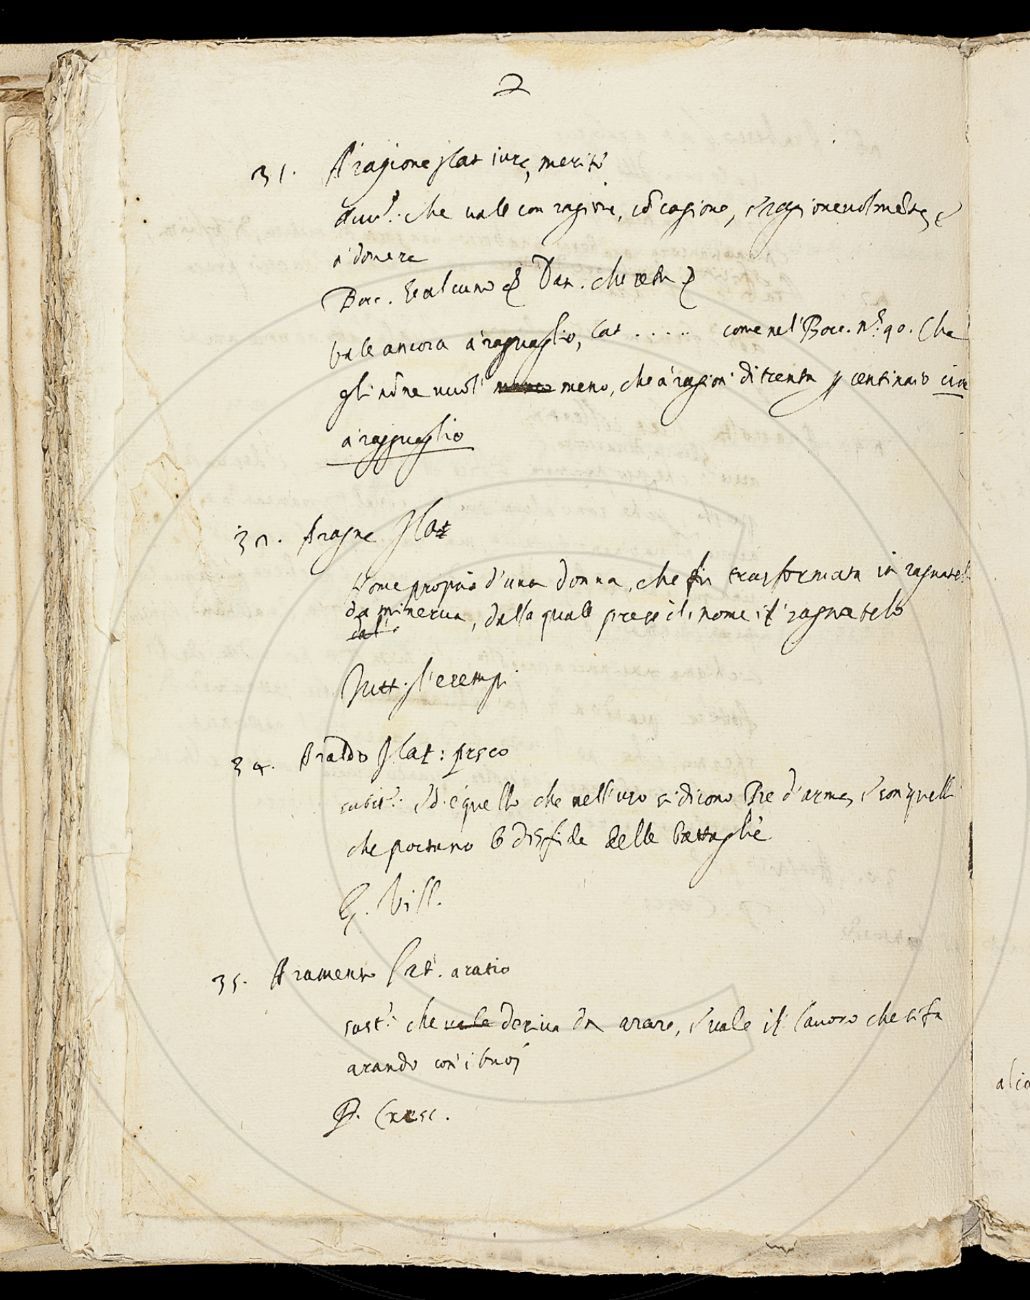 2
31. Aragione lat iure, merito
avv.º che vale con ragione, cõ cagione, e ragionevolmẽte, e
a dovere
Bocc. E alcuno Dan. che retta
vale ancora a ragguaglio, lat ..... come nel Bocc. n.º 90. Che
gli nõ ne vuol meno, che a ragion di trenta p centinaio cioe
a ragguaglio
Aragne lat
Nome proprio d'una donna, che fu trasformata in ragnatelo
da minerva, dalla quale prese il nome il ragnatelo
Tutti gl'esempi
34. Araldo lat:
sust.º ed è quello che nell'uso si dicono Re d'arme, e son quelli
che portano le disfide delle battaglie
G. Vill.
35. Aramento lat. aratio
sust.º che vale deriva da arare, e vale il lavoro che si fa
arando con i buoi
P. Cresc.